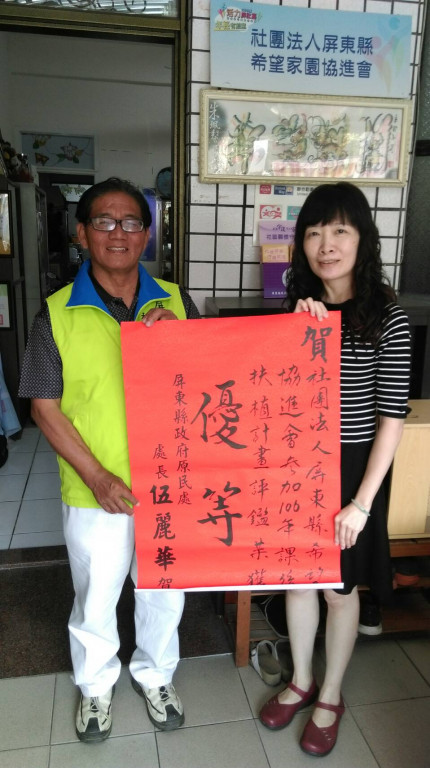 社團法人屏東縣
希望家園協進會
賀社團法人屏東縣希望
協進會參加106年課後
扶植計畫評鑑 榮獲
優等
屏東縣政府原民處
處長 伍麗華 賀